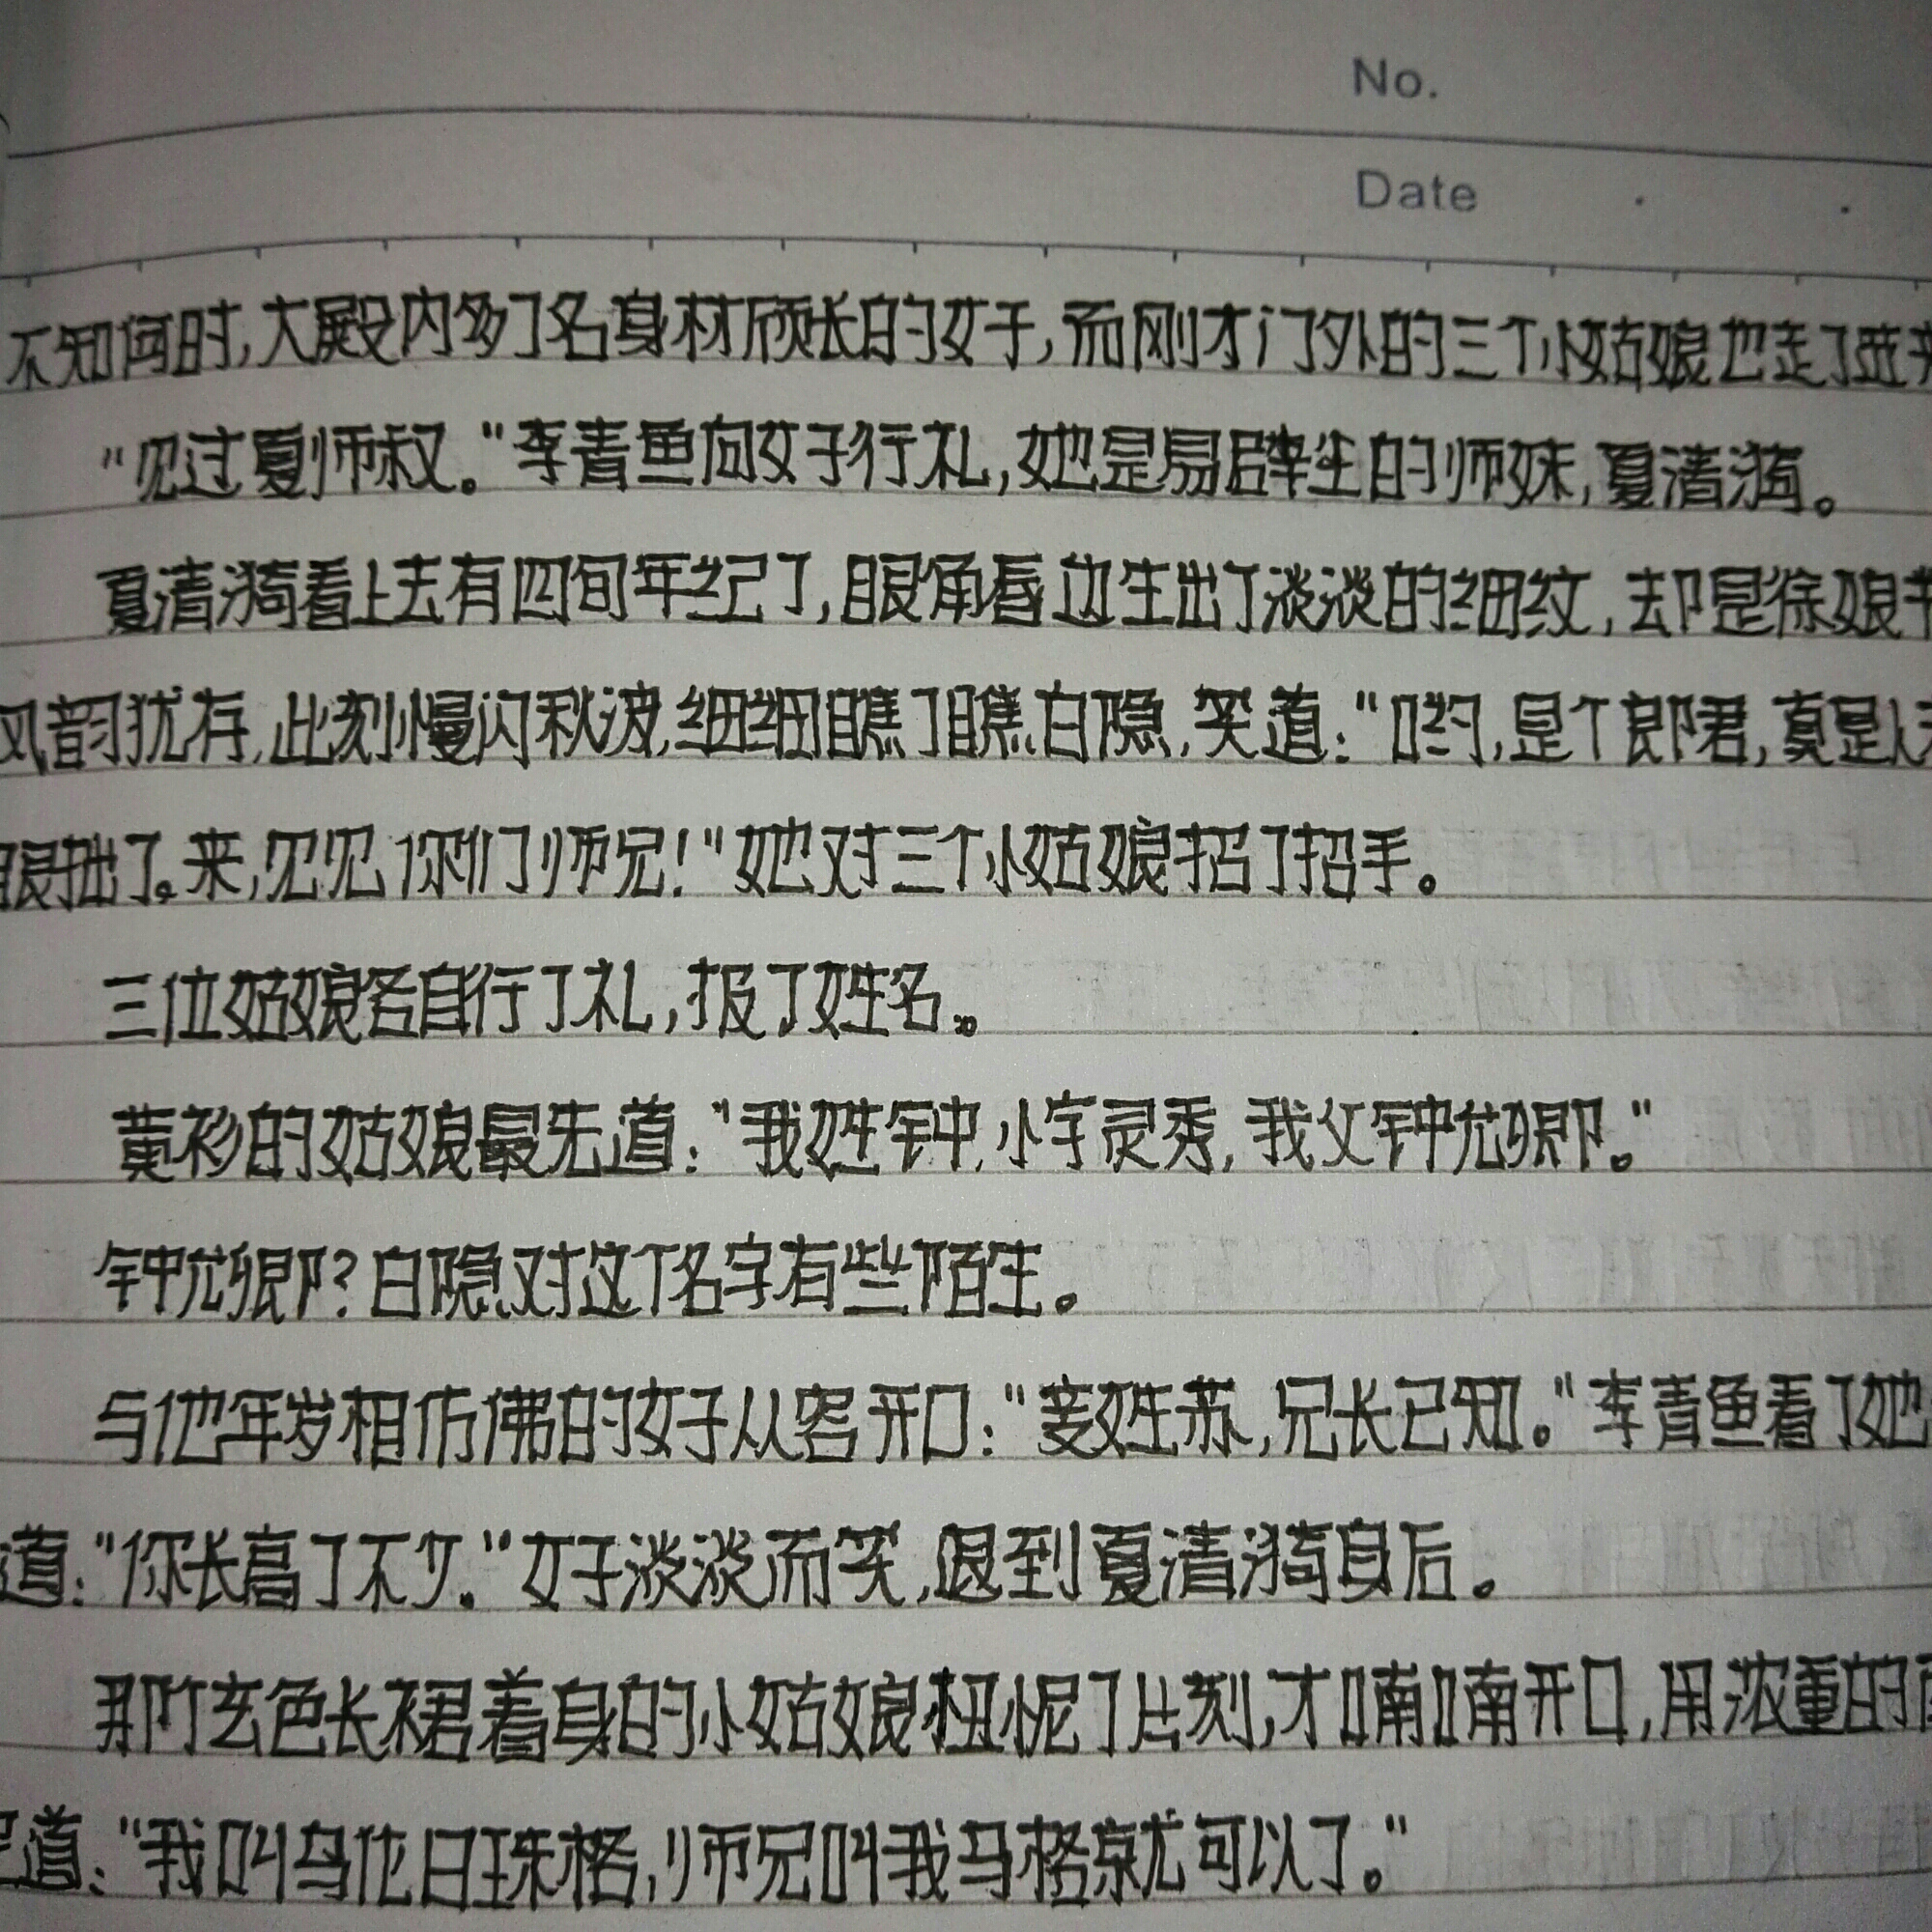 No.
Date
不知何时,大殿内多了名身材颀长的女子,而刚才门外的三个小姑娘也走了进来
"见过夏师叔。"李青鱼向女子行礼,她是易辟尘的师妹,夏清漪。
夏清漪看上去有四旬年纪了,眼角唇边生出了淡淡的细纹,却是徐娘半
风韵犹存,此刻慢闪秋波,细细瞧了瞧白隐,笑道:"哟,是个郎君,真是人老
眼拙了。来,见见你们师兄!"她对三个小姑娘招了招手。
三位姑娘各自行了礼,报了姓名。
黄衫的姑娘最先道:"我姓钟,小字灵秀,我父钟尤卿。"
钟尤卿?白隐对这个名字有些陌生。
与他年岁相仿佛的女子从容开口:"妾姓苏,兄长已知。"李青鱼看了她
道:"你长高了不少。"女子淡淡而笑,退到夏清漪身后。
那个玄色长裙着身的小姑娘扭怩了片刻,才喃喃开口,用浓重的
道:"我叫乌伦日珠格,师兄叫我乌格就可以了。"